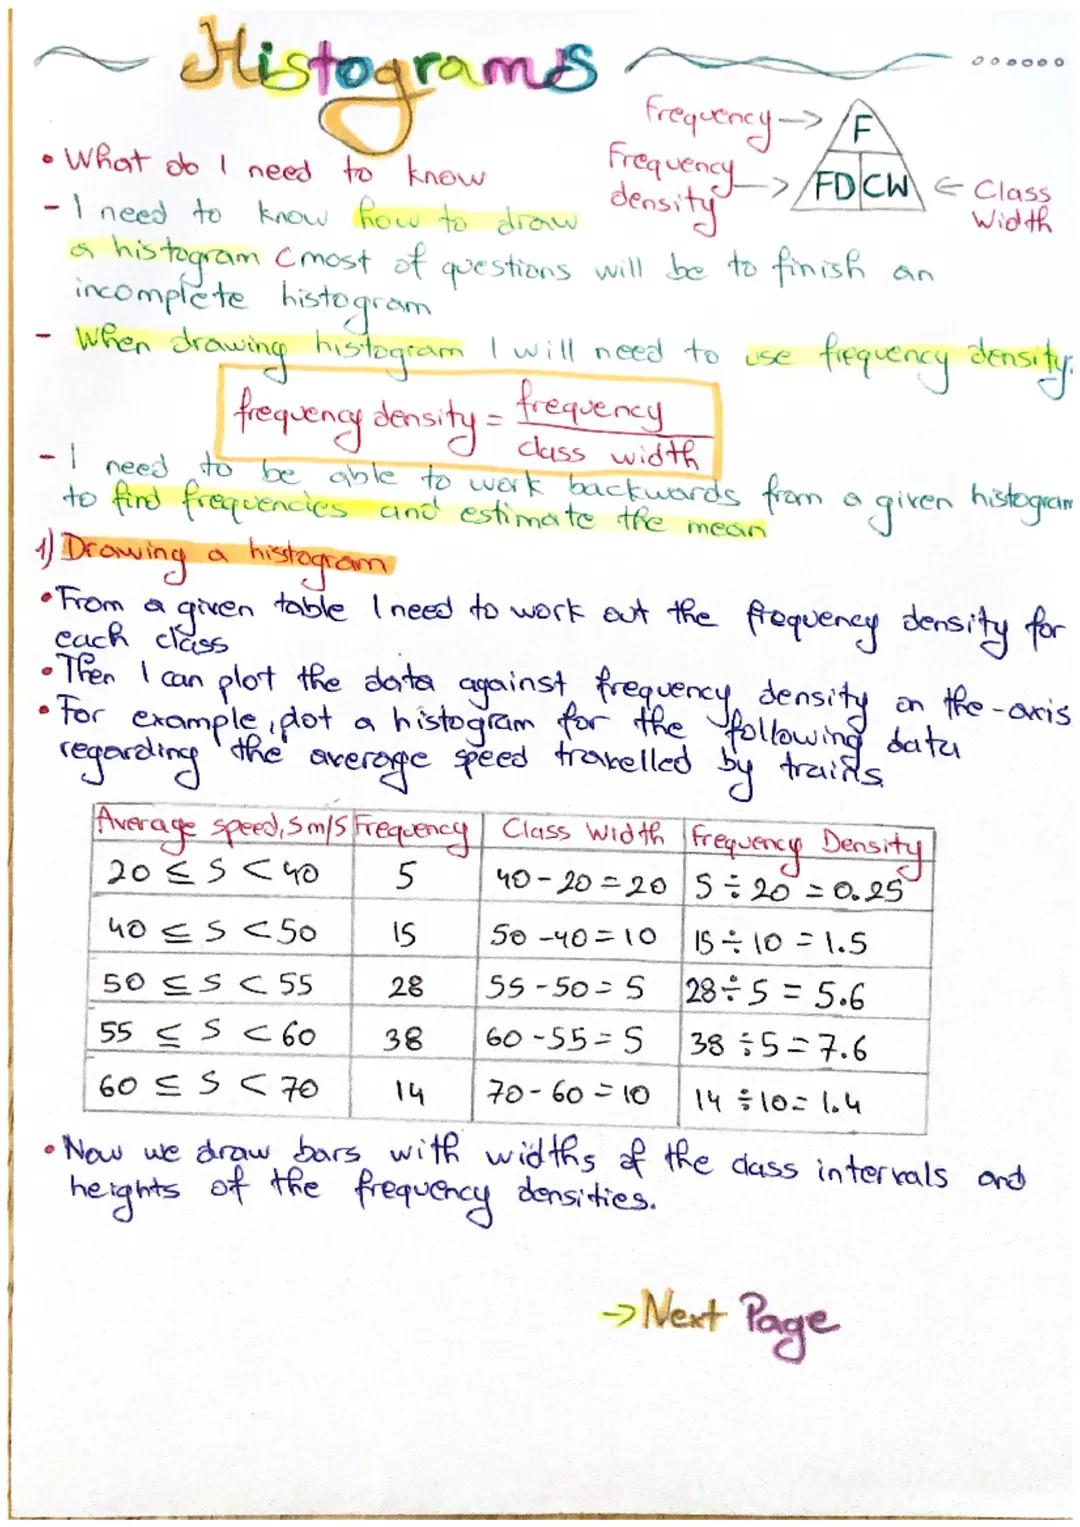 Histograms
Frequency → F
Frequency density → FD CW ← Class Width
• What do I need to know
- I need to know how to draw
a histogram (most of questions will be to finish an
incomplete histogram
- When drawing histogram I will need to use frequency density.
frequency density = frequency
class width
- I need to be able to work backwards from a given histogram
to find frequencies and estimate the mean
1) Drawing a histogram
• From a given table I need to work out the frequency density for
each class
• Then I can plot the data against frequency density on the -axis
• For example, plot a histogram for the following data
regarding the average speed travelled by trains
Average speed, S m/s Frequency Class Width Frequency Density
20 ≤ S < 40 5 40 - 20 = 20 5 ÷ 20 = 0.25
40 ≤ S < 50 15 50 - 40 = 10 15 ÷ 10 = 1.5
50 ≤ S < 55 28 55 - 50 = 5 28 ÷ 5 = 5.6
55 ≤ S < 60 38 60 - 55 = 5 38 ÷ 5 = 7.6
60 ≤ S < 70 14 70 - 60 = 10 14 ÷ 10 = 1.4
• Now we draw bars with widths of the class intervals and
heights of the frequency densities.
→ Next Page